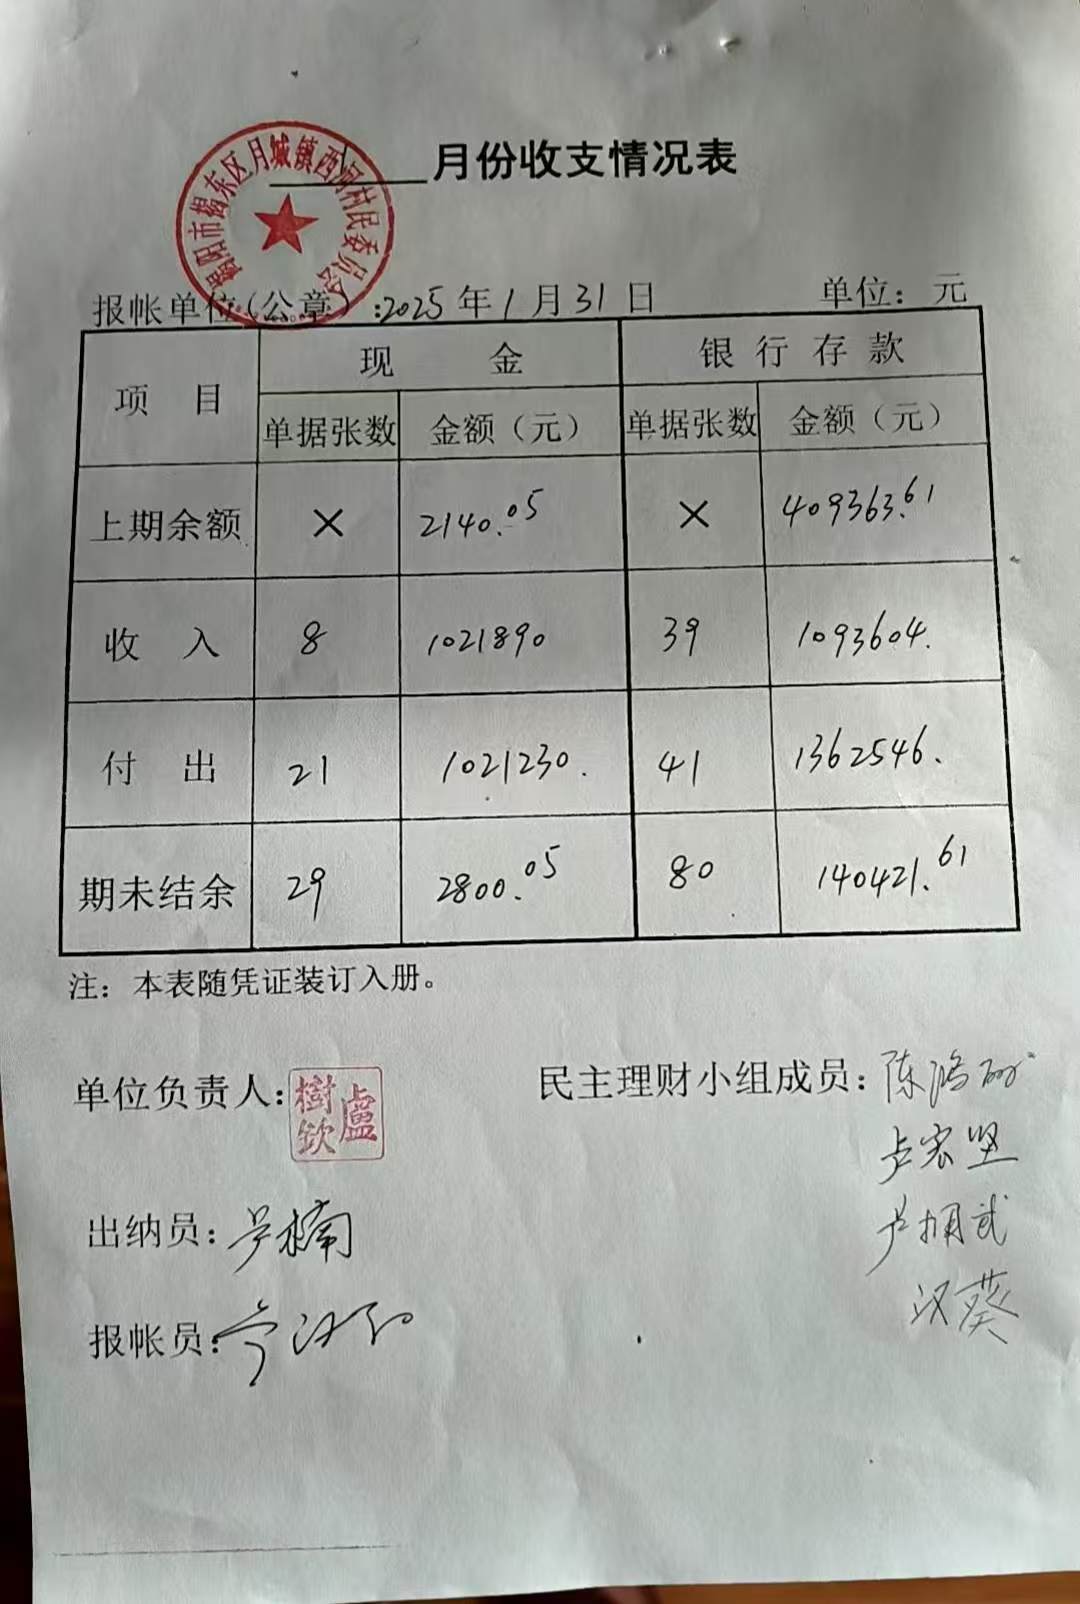 揭阳市揭东区月城镇西河村民委员会
月份收支情况表
报帐单位(公章):2025年1月31日 单位:元
项目 现金 银行存款
单据张数 金额(元) 单据张数 金额(元)
上期余额 × 2140.05 × 409363.61
收入 8 1021890 39 1093604.
付出 21 1021230. 41 1362546.
期未结余 29 2800.05 80 140421.61
注:本表随凭证装订入册。
单位负责人:盧樹欽 民主理财小组成员:陈鸿
卢宏坚
出纳员: 楠 卢 武
汉葵
报帐员: